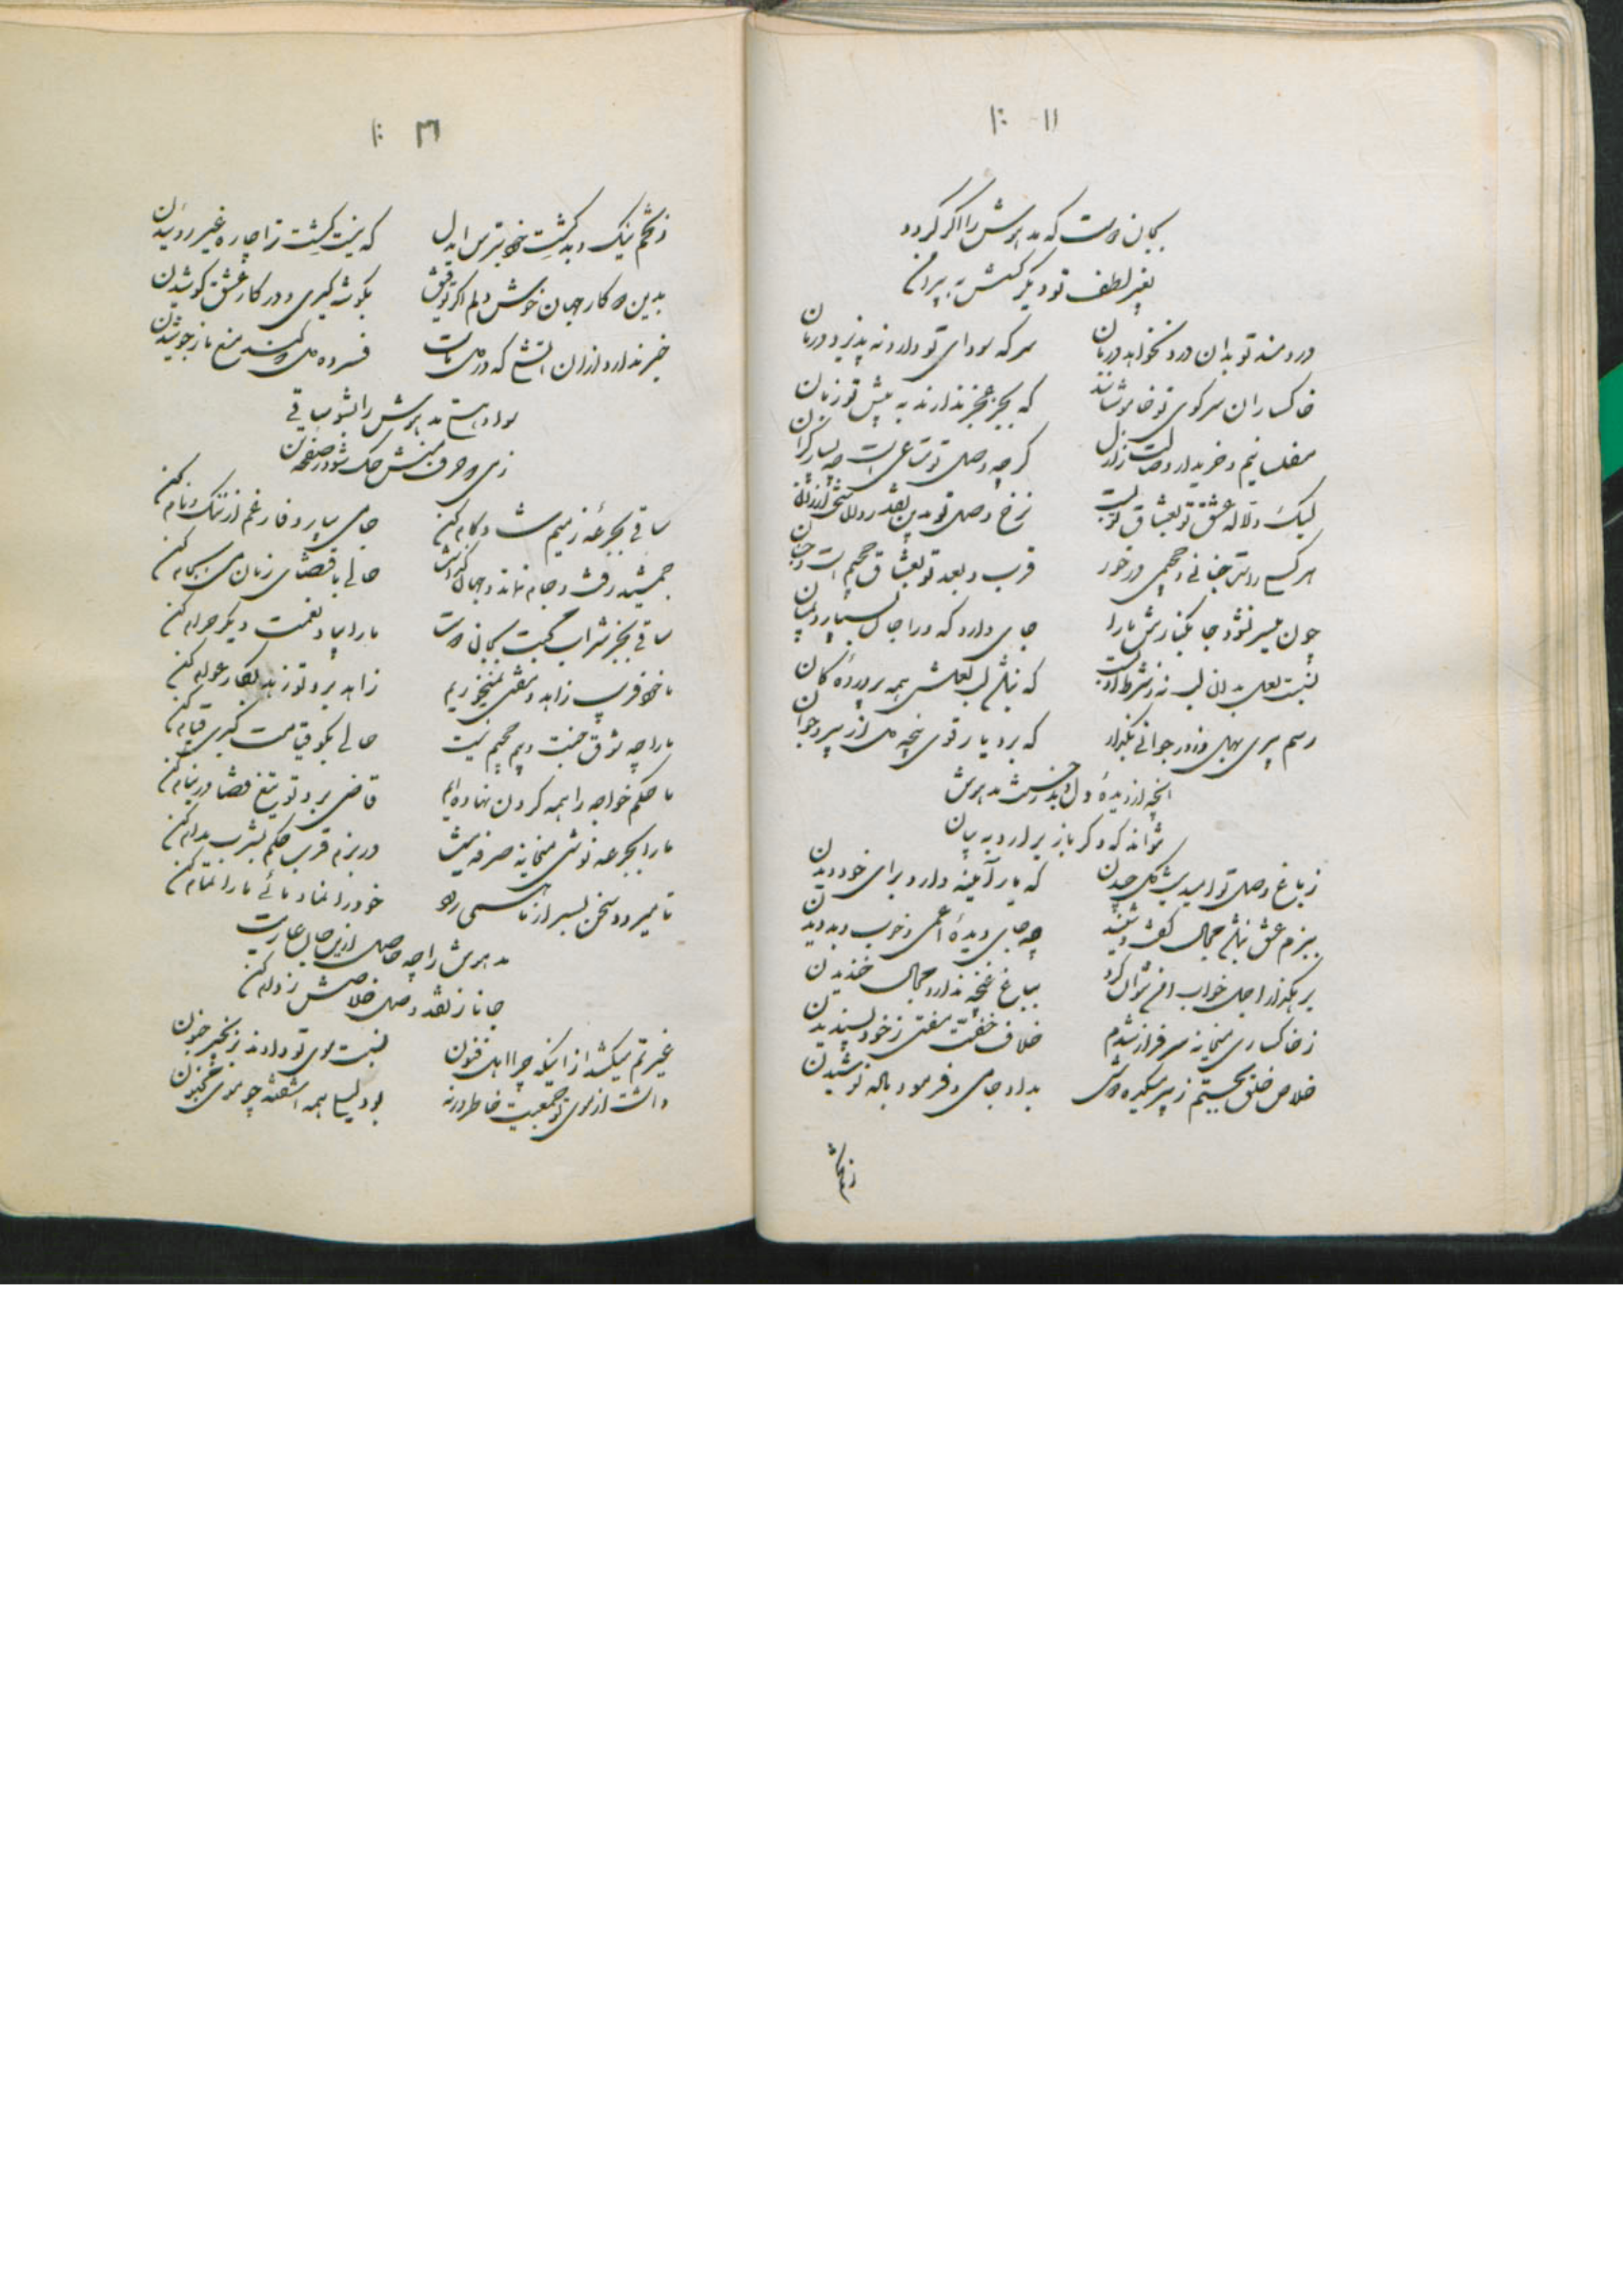 ۱۱
بجان دوست که مدهوش را اگر گردد
بغیر لطف تو دیگر کسش نه
دردمند تو بدان درد نخواهد درمان
هر که سودای تو دارد نه پذیرد درمان
خاکساران سر کوی تو خاموشانند
که بجز عجز ندارند به پیش تو زبان
مفلسانیم و خریدار وصالت ز ازل
گرچه وصل تو متاعی است چه بسیار گران
لیک دلاله عشق تو بعشاق تو گفت
نرخ وصل تو بدین نقد روان ارزان
هر کسی را جنانی و جحیمی در خور
قرب و بعد تو بعشاق جحیم است و جنان
چون میسر نشود جا بکنارش ما را
جای دارد که ورا جان بسپارد بمیان
نسبت لعل بدان لب نه ز شرط ادب است
که لب لعلش همه پرورده کان
رسم پیری بهل و زور جوانی بگذار
که برد یار قوی پنجه دل از پیر و جوان
آنچه از دیده و دل مدهوش
نتواند که دگر باز برارد به بیان
ز باغ وصل تو امید نیست گل چیدن
که یار آینه دارد برای خود دیدن
ببزم عشق نباشد مجال گفت و شنید
چه جای دیده اعمی و خوب و بد دیدن
برهگذار اجل خواب امن نتوان کرد
بباغ غنچه ندارد مجال خندیدن
ز خاکساری میخانه سرفراز شدم
خلاف مفتی ز خود پسندیدن
خلاص خلق بجستیم ز پیر میکده دوش
بداد جامی و فرمود باده نوشیدن
ز تخم
۱۲
ز تخم نیک و بد کشت خود بترس ایدل
که نیست کشت ترا چاره غیر روئیدن
بدین دو کار جهان خوش دلم اگر توفیق
بگوشه گیری و در کار عشق کوشیدن
خبر ندارد از آن آتشی که در دل ماست
فسرده دل که کند منع ما ز جوشیدن
سواد هستی مدهوش را بشو ساقی
ز می که حرف منش حک شود ز صفحه
ساقی بجرعه ز میم مست و کام کن
جامی بیار و فارغم از ننگ و نام کن
جمشید رفت و جام نماند و جهان گذاشت
حالی باقتضای زمان می بجام کن
ساقی بجز شراب محبت بجان دوست
ما را بیاد نعمت دیگر حرام کن
ما خود فریب زاهد و مفتی نمیخوریم
زاهد برو تو زهد بکار عوام کن
ما را چه شوق جنت و بیم جحیم نیست
حالی بگو قیامت کبری قیام کن
ما حکم خواجه را همه گردن نهاده ایم
قاضی برو تو تیغ قضا در نیام کن
ما را بجرعه نوشی میخانه صرفه نیست
در بزم قرب حکم بشرب مدام کن
تا میرود سخن بسر از ما هستی
خود را نما و مائی ما را تمام کن
مدهوش را چه حاصل ازین جان عاریت
جانا ز نقد وصل خلاصش ز وام کن
غیرتم میکشد از اینکه چرا اهل فنون
نسبت موی تو دادند بزنجیر جنون
داشت از موی تو جمعیت خاطر ورنه
بود لیلا همه آشفته چو موی مجنون